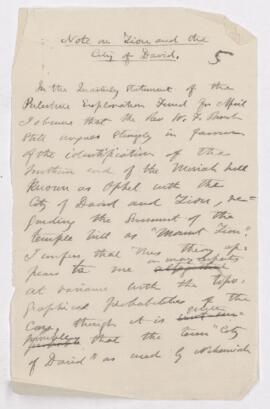 Note on Zion and the
City of David.
5
In the Quarterly Statement of the
Palestine Exploration Fund for April
I observe that the Rev W. F. Birch
still argues strongly in favour
of the identification of the
Southern end of the Moriah hill
known as Ophel with the
City of David and Zion, re-
garding the Summit of the
temple hill as "Mount Zion".
I confess that this theory ap-
pears to me in many respects
at variance with the topo-
graphical probabilities of the
Case though it is quite
possible that the term "City
of David" as used by Nehemiah